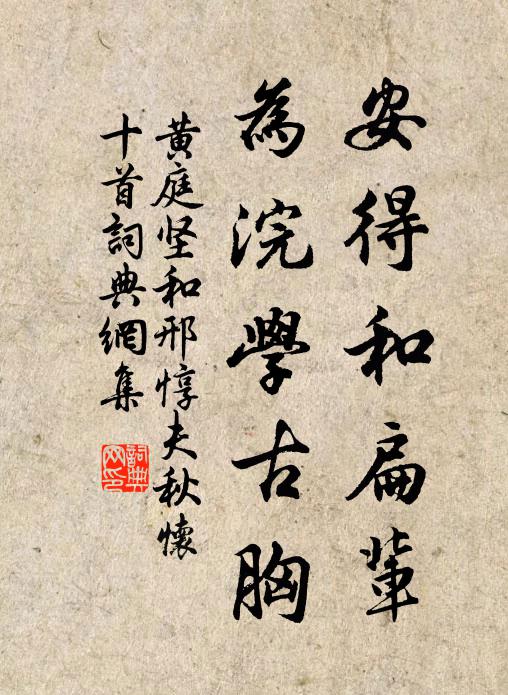 安得和扁輩
為浣學古胸
黃庭坚和邢惇夫秋懷
十首詞典網集
詞典
网印